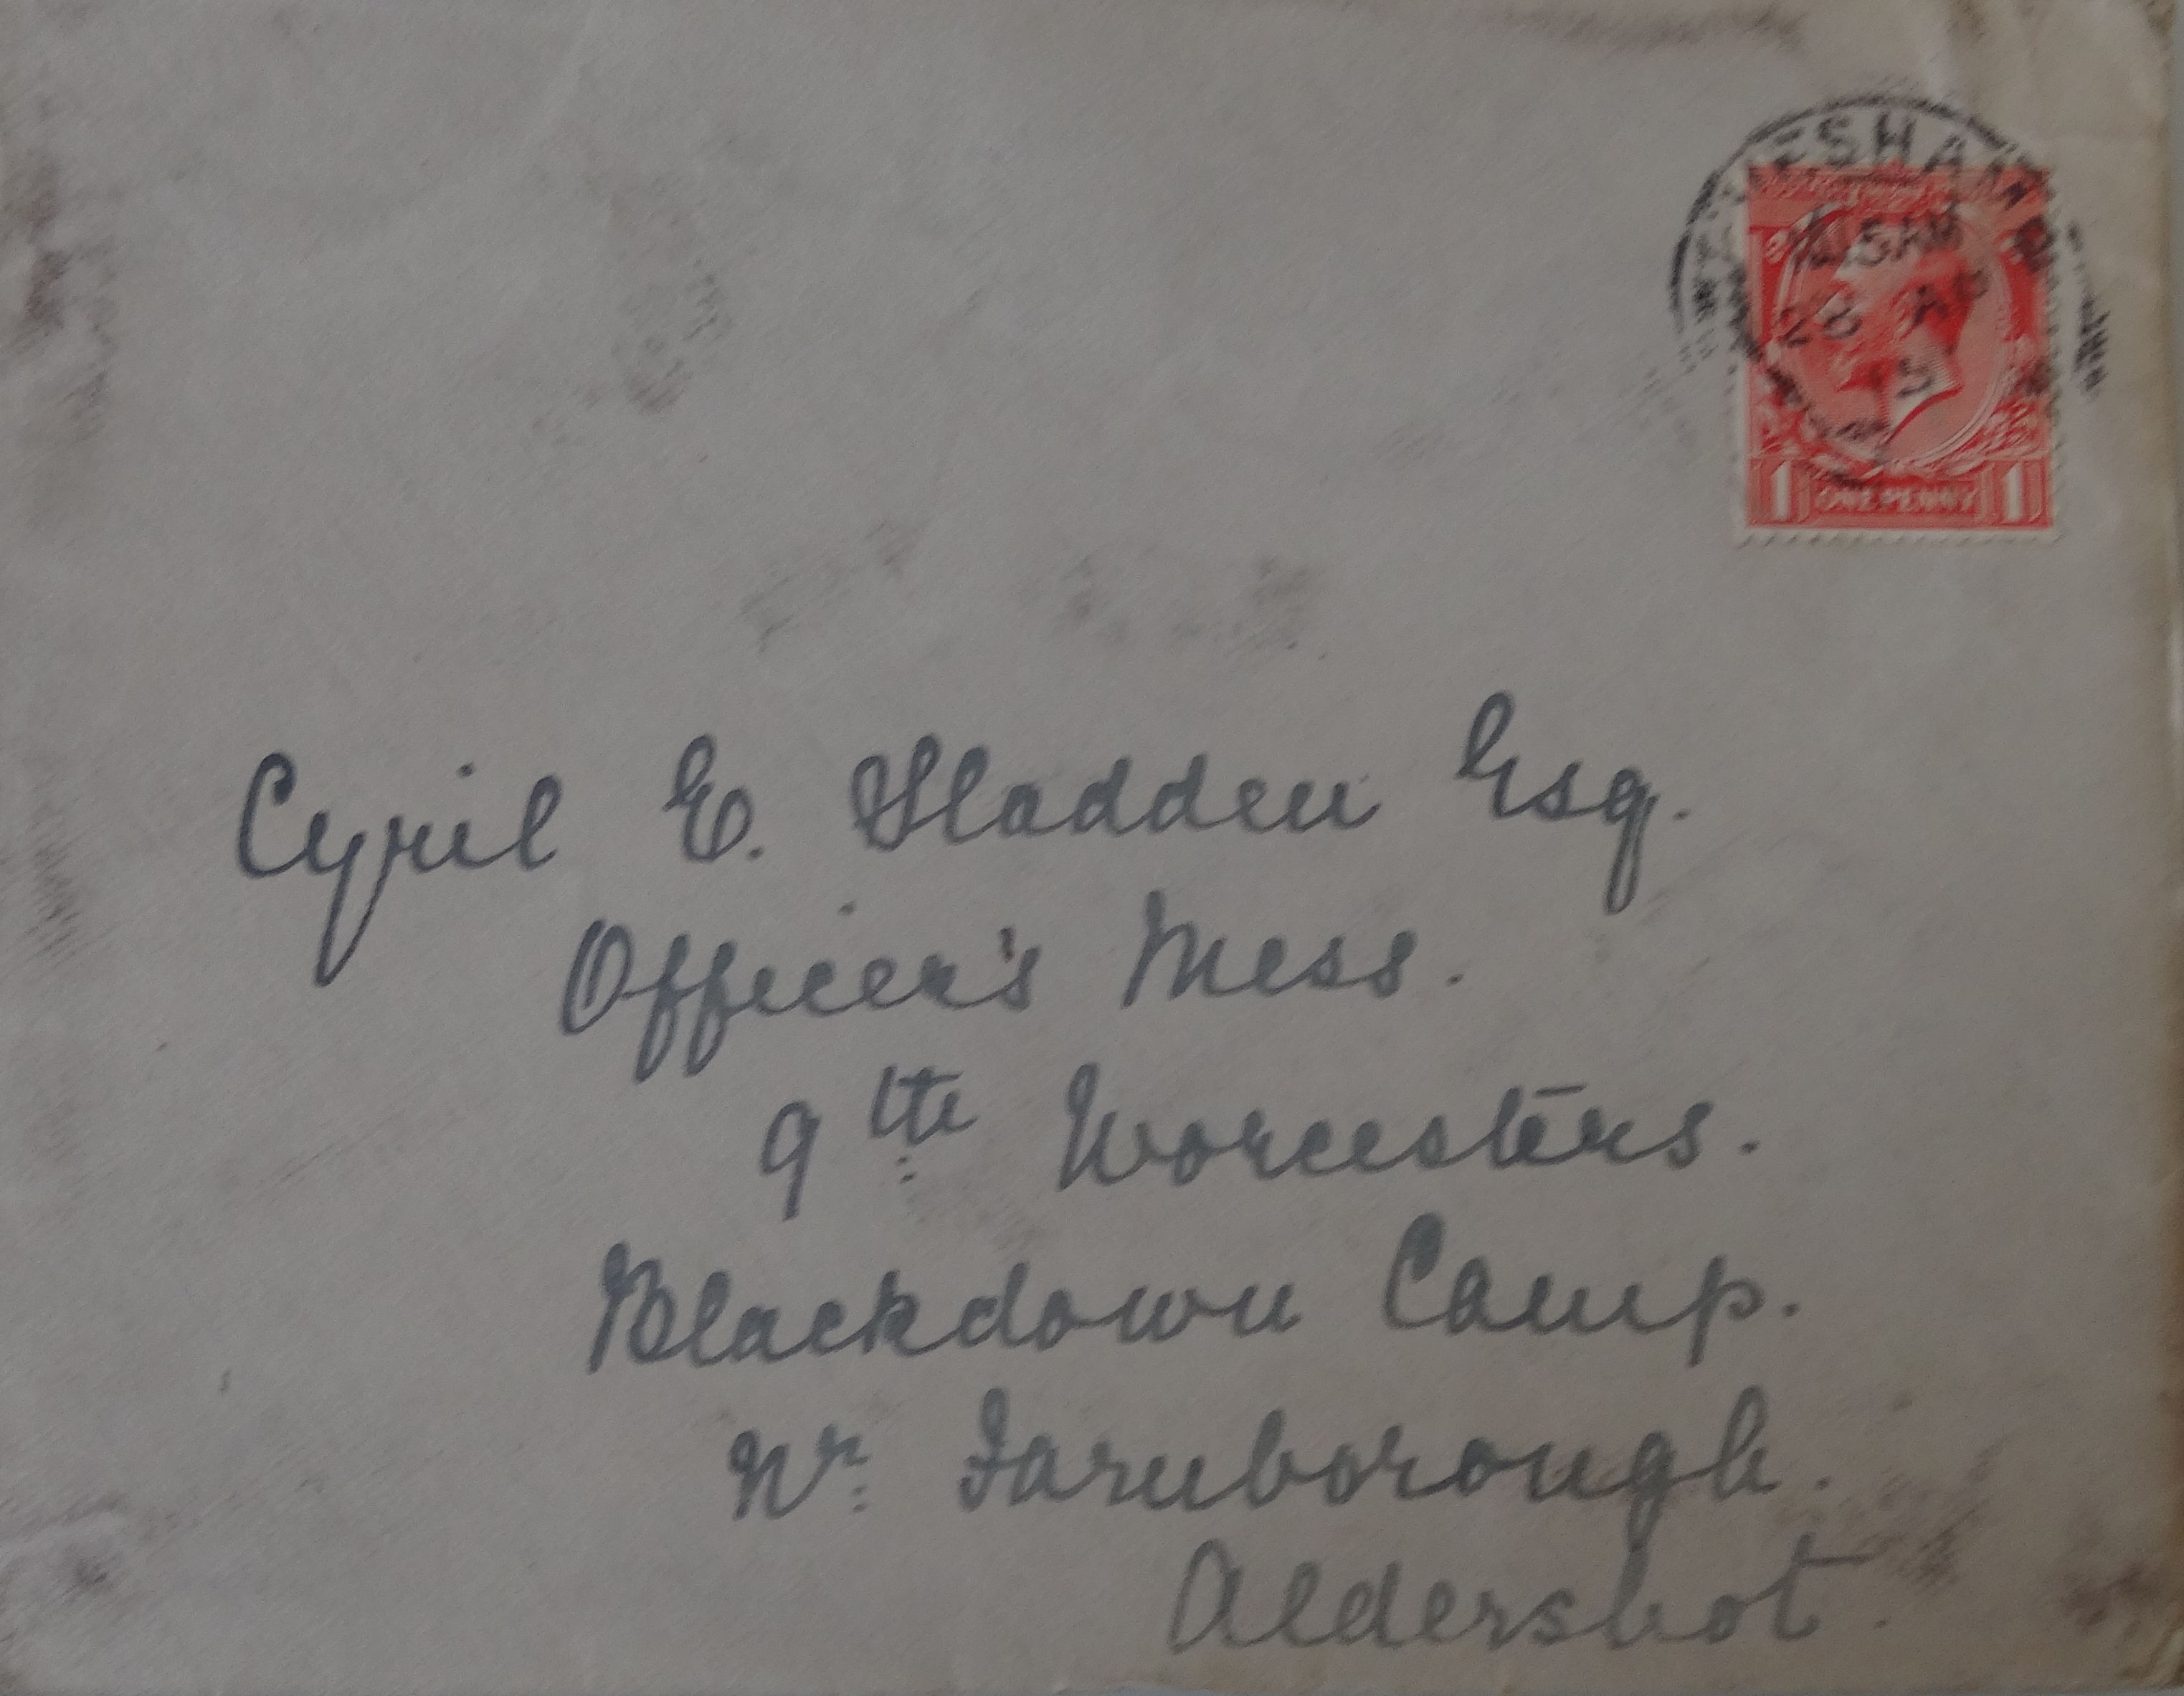 ESHA
15AM
28 AP
15
1 ONE PENNY 1
Cyril E. Sladden Esq.
Officer's Mess.
9th Worcesters.
Blackdown Camp.
Nr. Farnborough.
Aldershot.